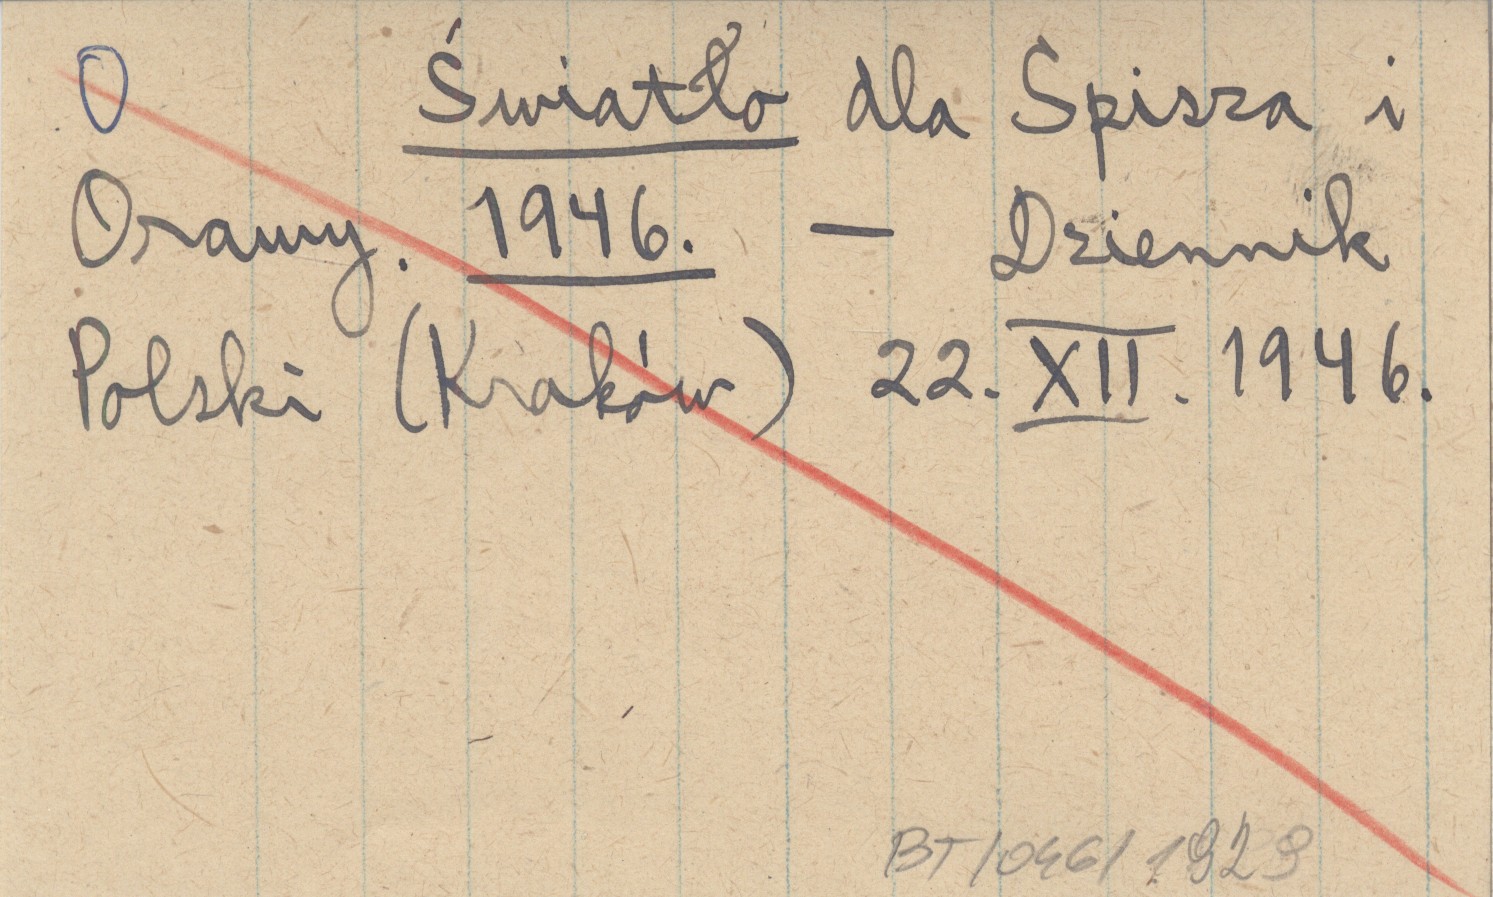 O Światło dla Spisza i
Orawy. 1946. — Dziennik
Polski (Kraków) 22. XII. 1946.
BT/046/1929